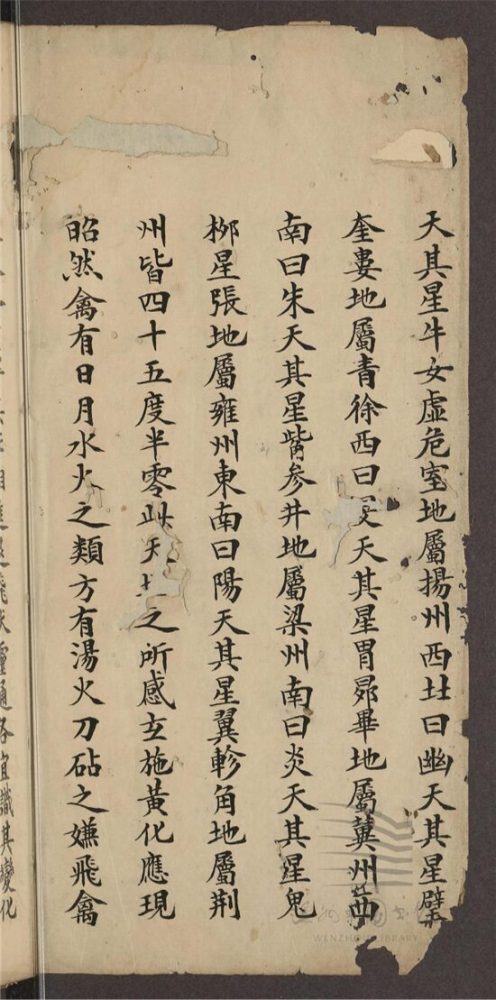 天其星牛女虛危室地屬揚州西北曰幽天其星壁
奎婁地屬青徐西曰天其星胃昴畢地屬冀州西
南曰朱天其星觜参井地屬梁州南曰炎天其星鬼
栁星張地屬雍州東南曰陽天其星翼軫角地屬荆
州皆四十五度半零此天之所感玄施黃化應現
昭然禽有日月水火之類方有湯火刀砧之嫌飛禽
各宜識其變化
WENZHOU LIBRARY